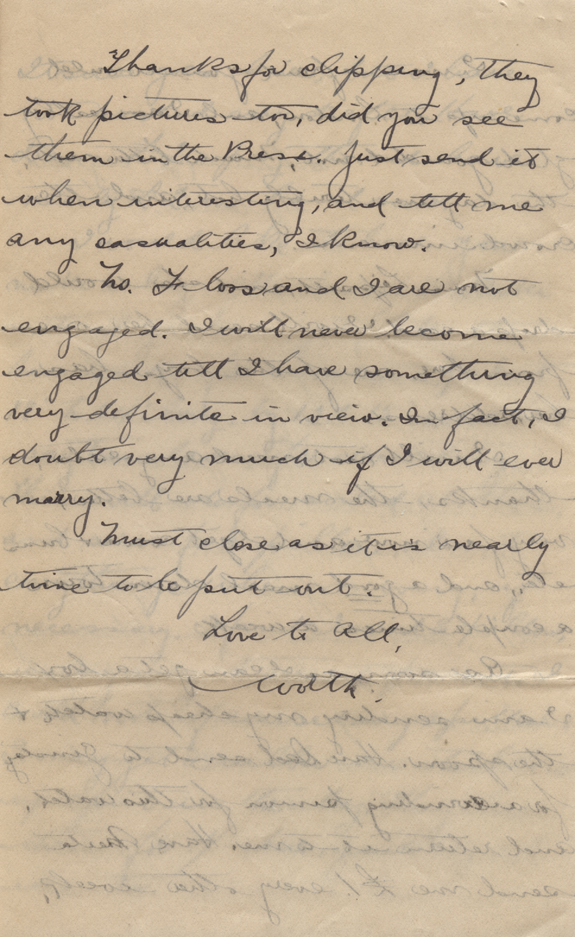 Thanks for clipping, they
took pictures too, did you see
them in the Press. Just send it
when interesting, and tell me
any casualities, I know.
No. Floss and I are not
engaged. I will never become
engaged till I have something
very definite in view. In fact, I
doubt very much if I will ever
marry.
Must close as it is nearly
time to be put out.
Love to All,
Worth.